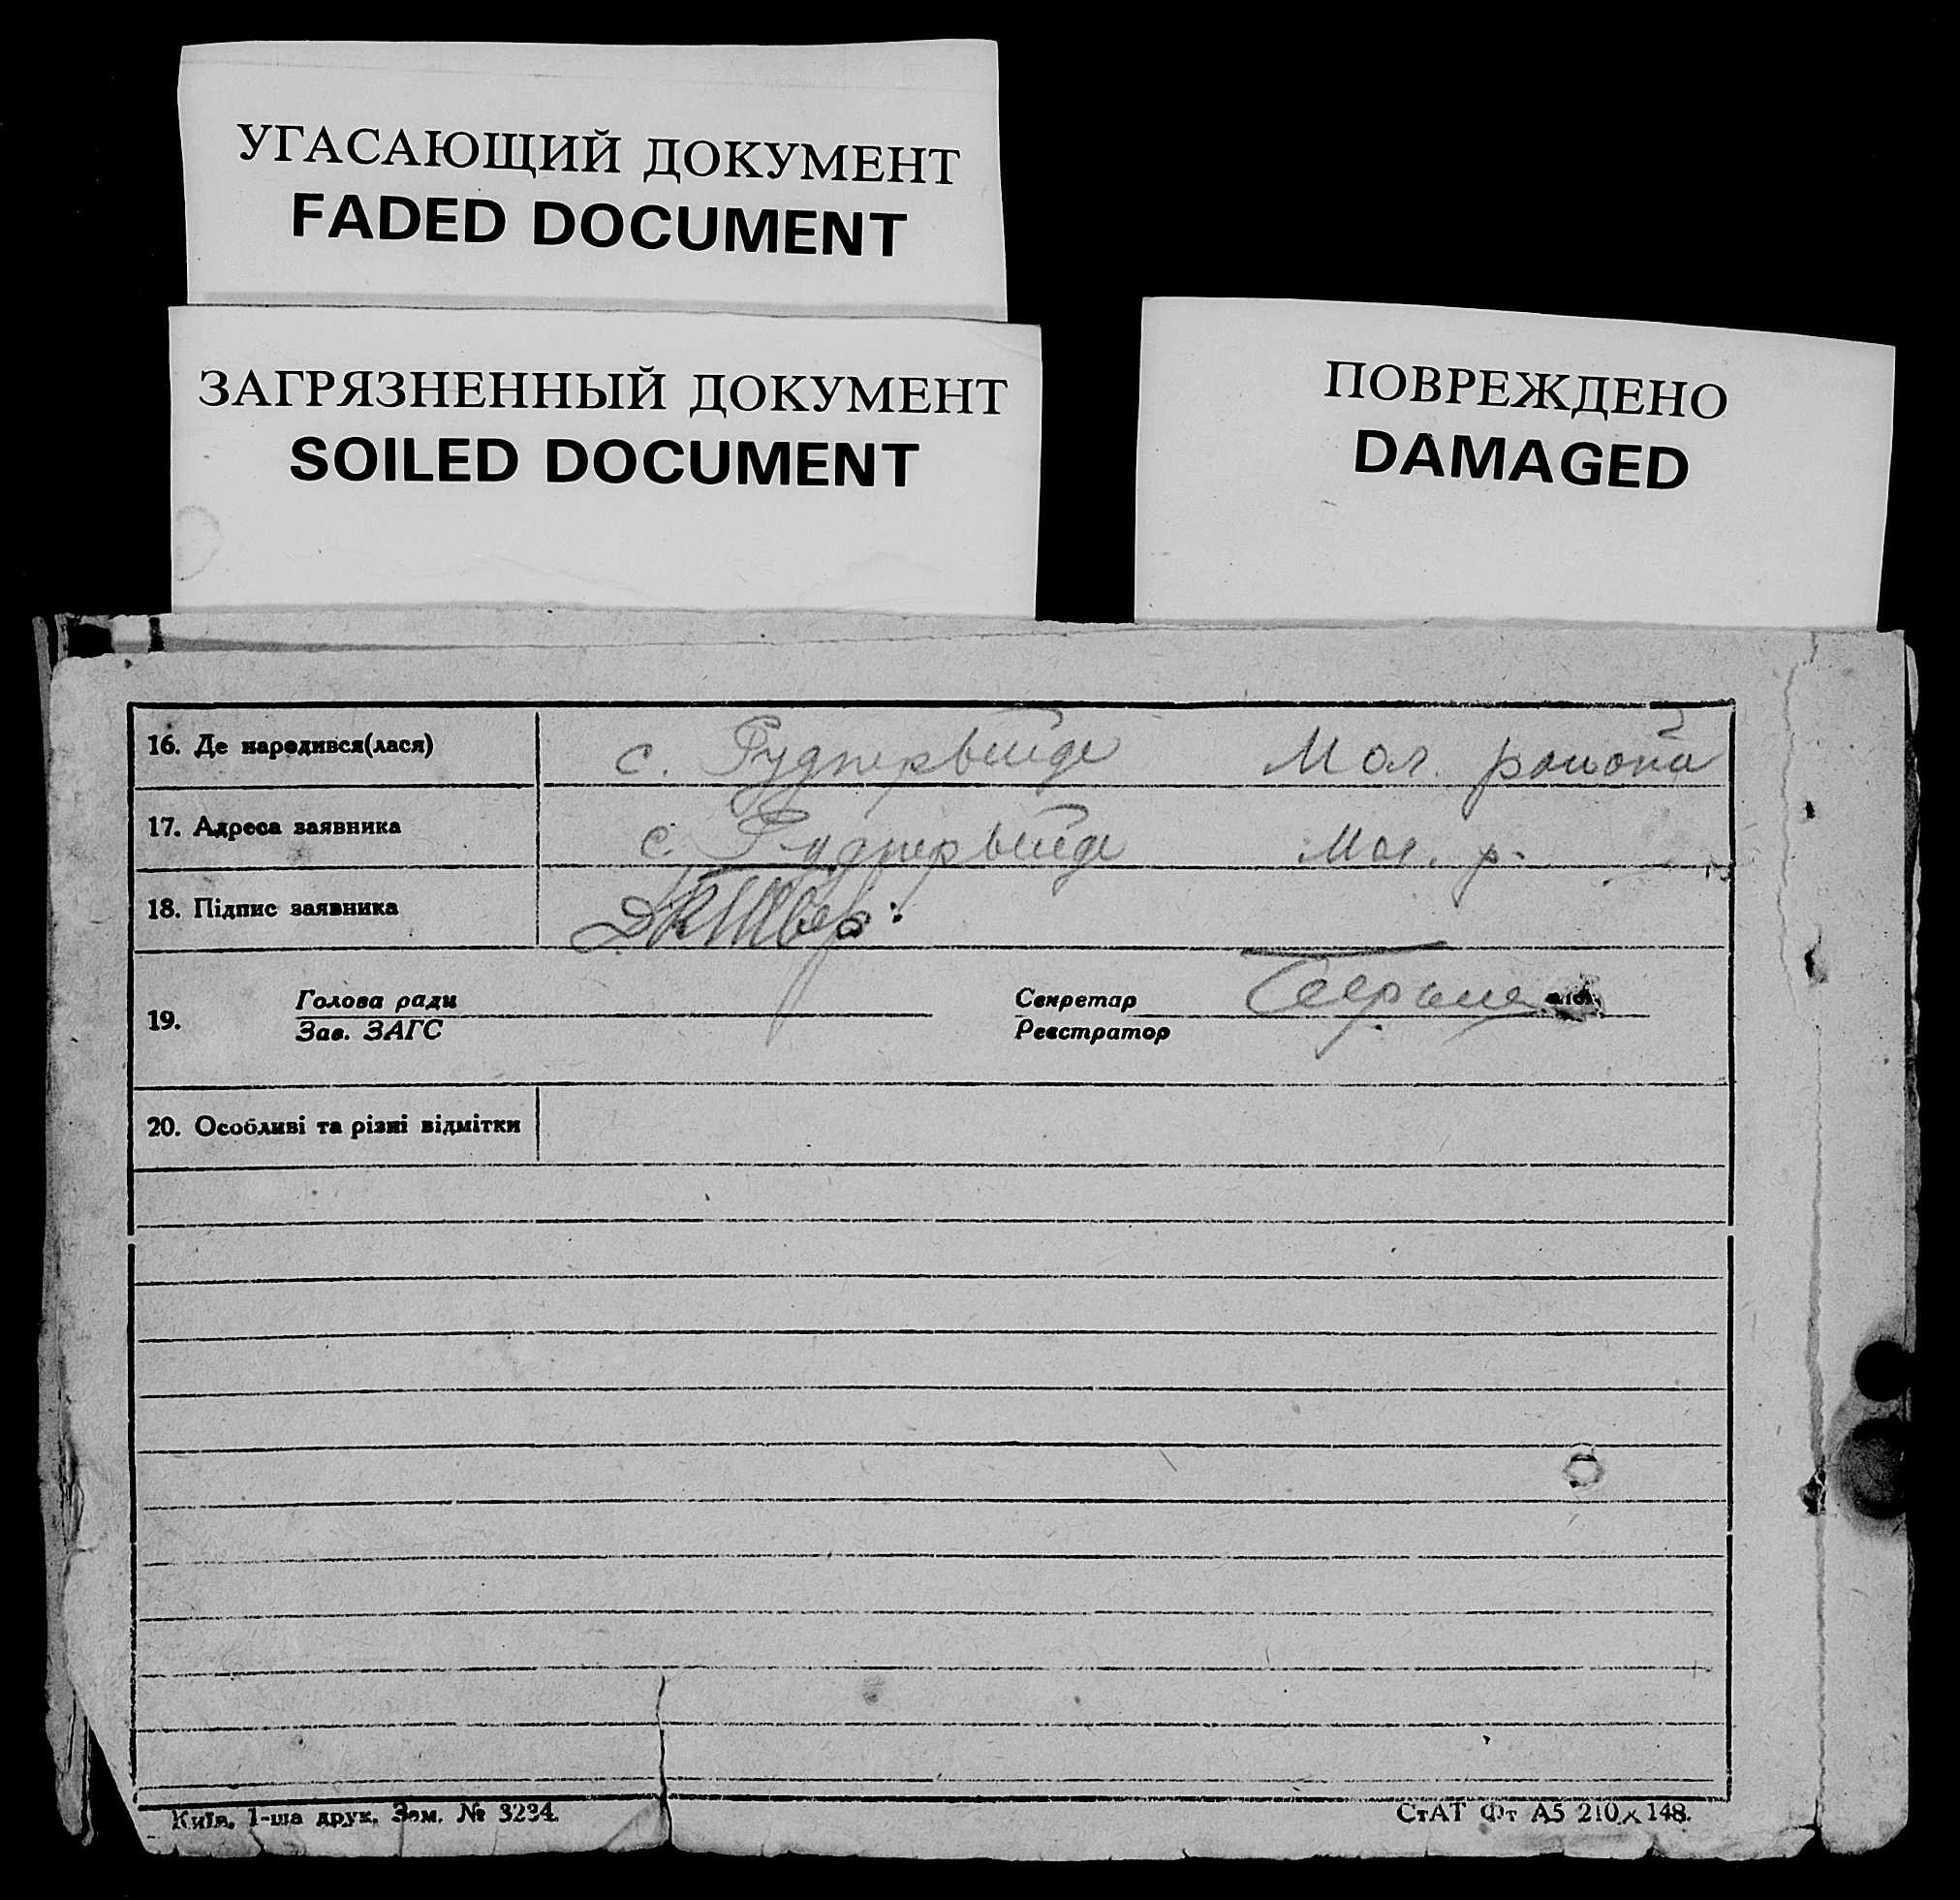 УГАСАЮЩИЙ ДОКУМЕНТ
FADED DOCUMENT
ЗАГРЯЗНЕННЫЙ ДОКУМЕНТ
SOILED DOCUMENT
ПОВРЕЖДЕНО
DAMAGED
16. Де народився(лася) с. Рудпервейде Мол. района
17. Адреса заявника с. Рудпервейде Мол. р.
18. Підпис заявника
19. Голова ради
Зав. ЗАГС
Секретар
Реєстратор
20. Особливі та різні відмітки
Київ, 1-ша друк. Зам. № 3234.
СтАТ Фт А5 210×148.